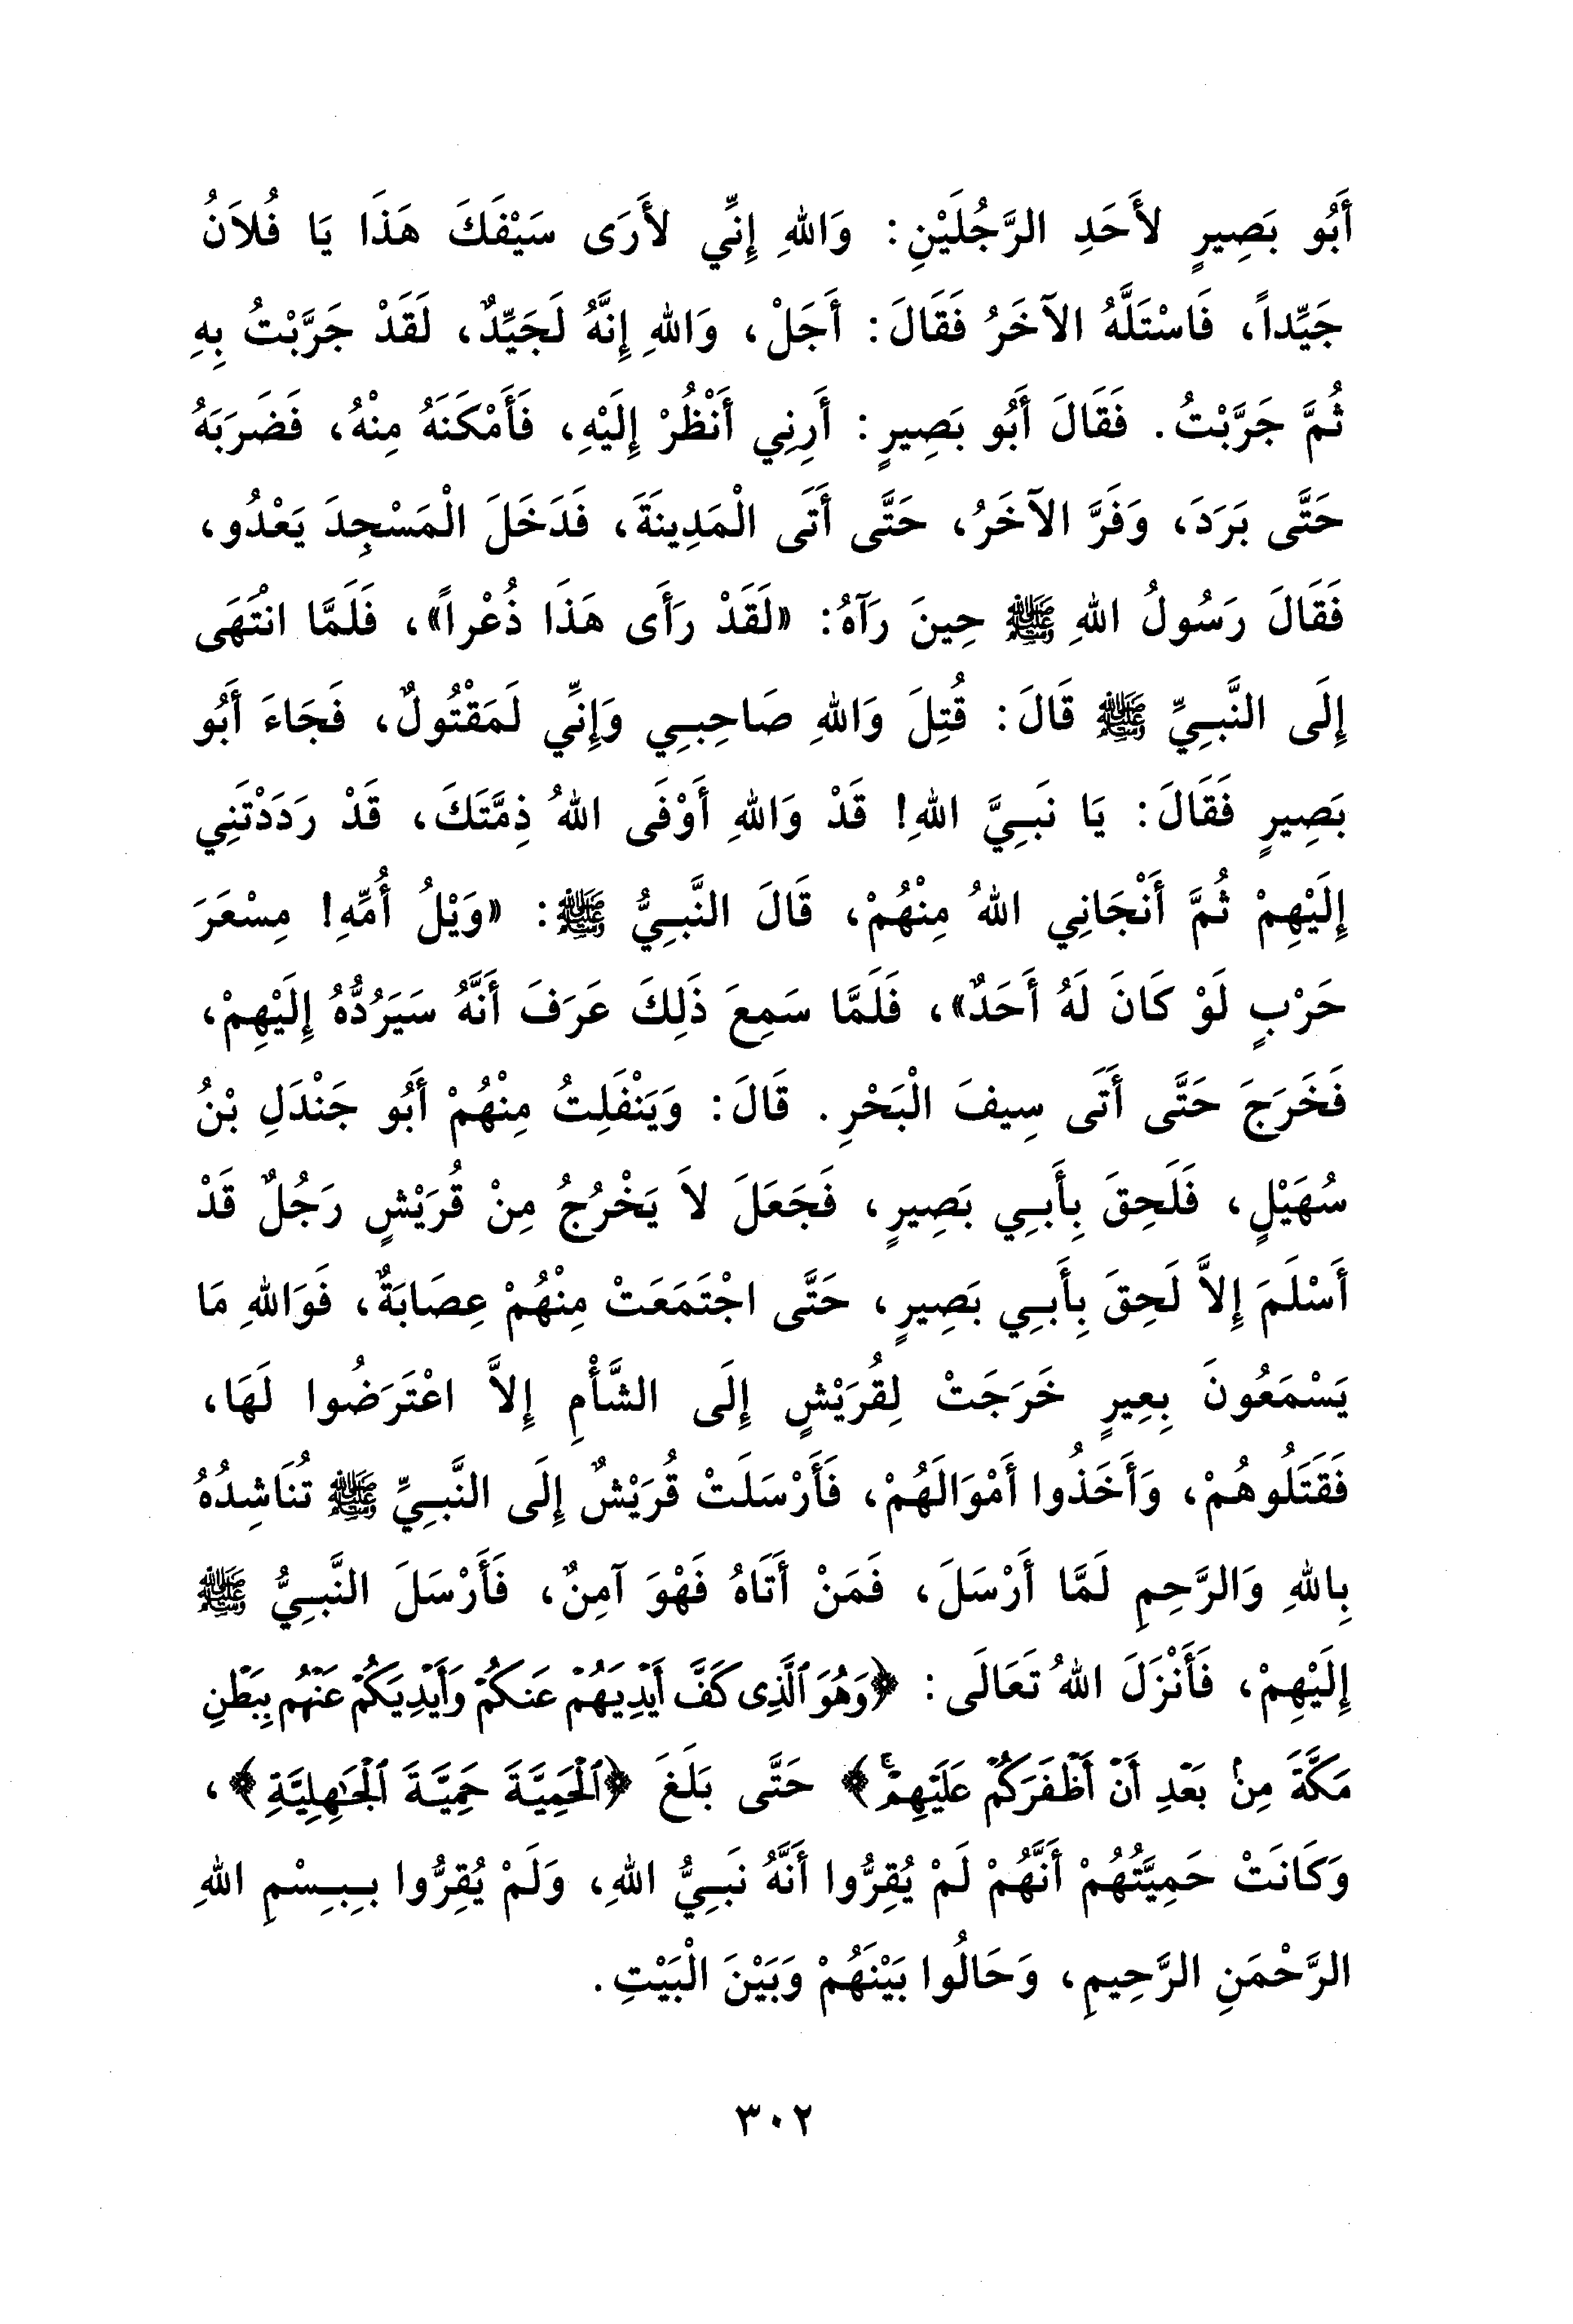 أَبُو بَصِيرٍ لأَحَدِ الرَّجُلَيْنِ: وَاللهِ إِنِّي لأَرَى سَيْفَكَ هَذَا يَا فُلاَنُ
جَيِّداً، فَاسْتَلَّهُ الآخَرُ فَقَالَ: أَجَلْ، وَاللهِ إِنَّهُ لَجَيِّدٌ، لَقَدْ جَرَّبْتُ بِهِ
ثُمَّ جَرَّبْتُ. فَقَالَ أَبُو بَصِيرٍ: أَرِنِي أَنْظُرْ إِلَيْهِ، فَأَمْكَنَهُ مِنْهُ، فَضَرَبَهُ
حَتَّى بَرَدَ، وَفَرَّ الآخَرُ، حَتَّى أَتَى الْمَدِينَةَ، فَدَخَلَ الْمَسْجِدَ يَعْدُو،
فَقَالَ رَسُولُ اللهِ ﷺ حِينَ رَآهُ: «لَقَدْ رَأَى هَذَا ذُعْراً»، فَلَمَّا انْتَهَى
إِلَى النَّبِيِّ ﷺ قَالَ: قُتِلَ وَاللهِ صَاحِبِي وَإِنِّي لَمَقْتُولٌ، فَجَاءَ أَبُو
بَصِيرٍ فَقَالَ: يَا نَبِيَّ اللهِ! قَدْ وَاللهِ أَوْفَى اللهُ ذِمَّتَكَ، قَدْ رَدَدْتَنِي
إِلَيْهِمْ ثُمَّ أَنْجَانِي اللهُ مِنْهُمْ، قَالَ النَّبِيُّ ﷺ: «وَيْلُ أُمِّهِ! مِسْعَرَ
حَرْبٍ لَوْ كَانَ لَهُ أَحَدٌ»، فَلَمَّا سَمِعَ ذَلِكَ عَرَفَ أَنَّهُ سَيَرُدُّهُ إِلَيْهِمْ،
فَخَرَجَ حَتَّى أَتَى سِيفَ الْبَحْرِ. قَالَ: وَيَنْفَلِتُ مِنْهُمْ أَبُو جَنْدَلِ بْنُ
سُهَيْلٍ، فَلَحِقَ بِأَبِي بَصِيرٍ، فَجَعَلَ لاَ يَخْرُجُ مِنْ قُرَيْشٍ رَجُلٌ قَدْ
أَسْلَمَ إِلاَّ لَحِقَ بِأَبِي بَصِيرٍ، حَتَّى اجْتَمَعَتْ مِنْهُمْ عِصَابَةٌ، فَوَاللهِ مَا
يَسْمَعُونَ بِعِيرٍ خَرَجَتْ لِقُرَيْشٍ إِلَى الشَّأْمِ إِلاَّ اعْتَرَضُوا لَهَا،
فَقَتَلُوهُمْ، وَأَخَذُوا أَمْوَالَهُمْ، فَأَرْسَلَتْ قُرَيْشٌ إِلَى النَّبِيِّ ﷺ تُنَاشِدُهُ
بِاللهِ وَالرَّحِمِ لَمَّا أَرْسَلَ، فَمَنْ أَتَاهُ فَهْوَ آمِنٌ، فَأَرْسَلَ النَّبِيُّ ﷺ
إِلَيْهِمْ، فَأَنْزَلَ اللهُ تَعَالَى: ﴿وَهُوَ ٱلَّذِى كَفَّ أَيْدِيَهُمْ عَنكُمْ وَأَيْدِيَكُمْ عَنْهُم بِبَطْنِ
مَكَّةَ مِنۢ بَعْدِ أَنْ أَظْفَرَكُمْ عَلَيْهِمْۚ﴾ حَتَّى بَلَغَ ﴿ٱلْحَمِيَّةَ حَمِيَّةَ ٱلْجَٰهِلِيَّةِ﴾،
وَكَانَتْ حَمِيَّتُهُمْ أَنَّهُمْ لَمْ يُقِرُّوا أَنَّهُ نَبِيُّ اللهِ، وَلَمْ يُقِرُّوا بِبِسْمِ اللهِ
الرَّحْمَنِ الرَّحِيمِ، وَحَالُوا بَيْنَهُمْ وَبَيْنَ الْبَيْتِ.
٣٠٢